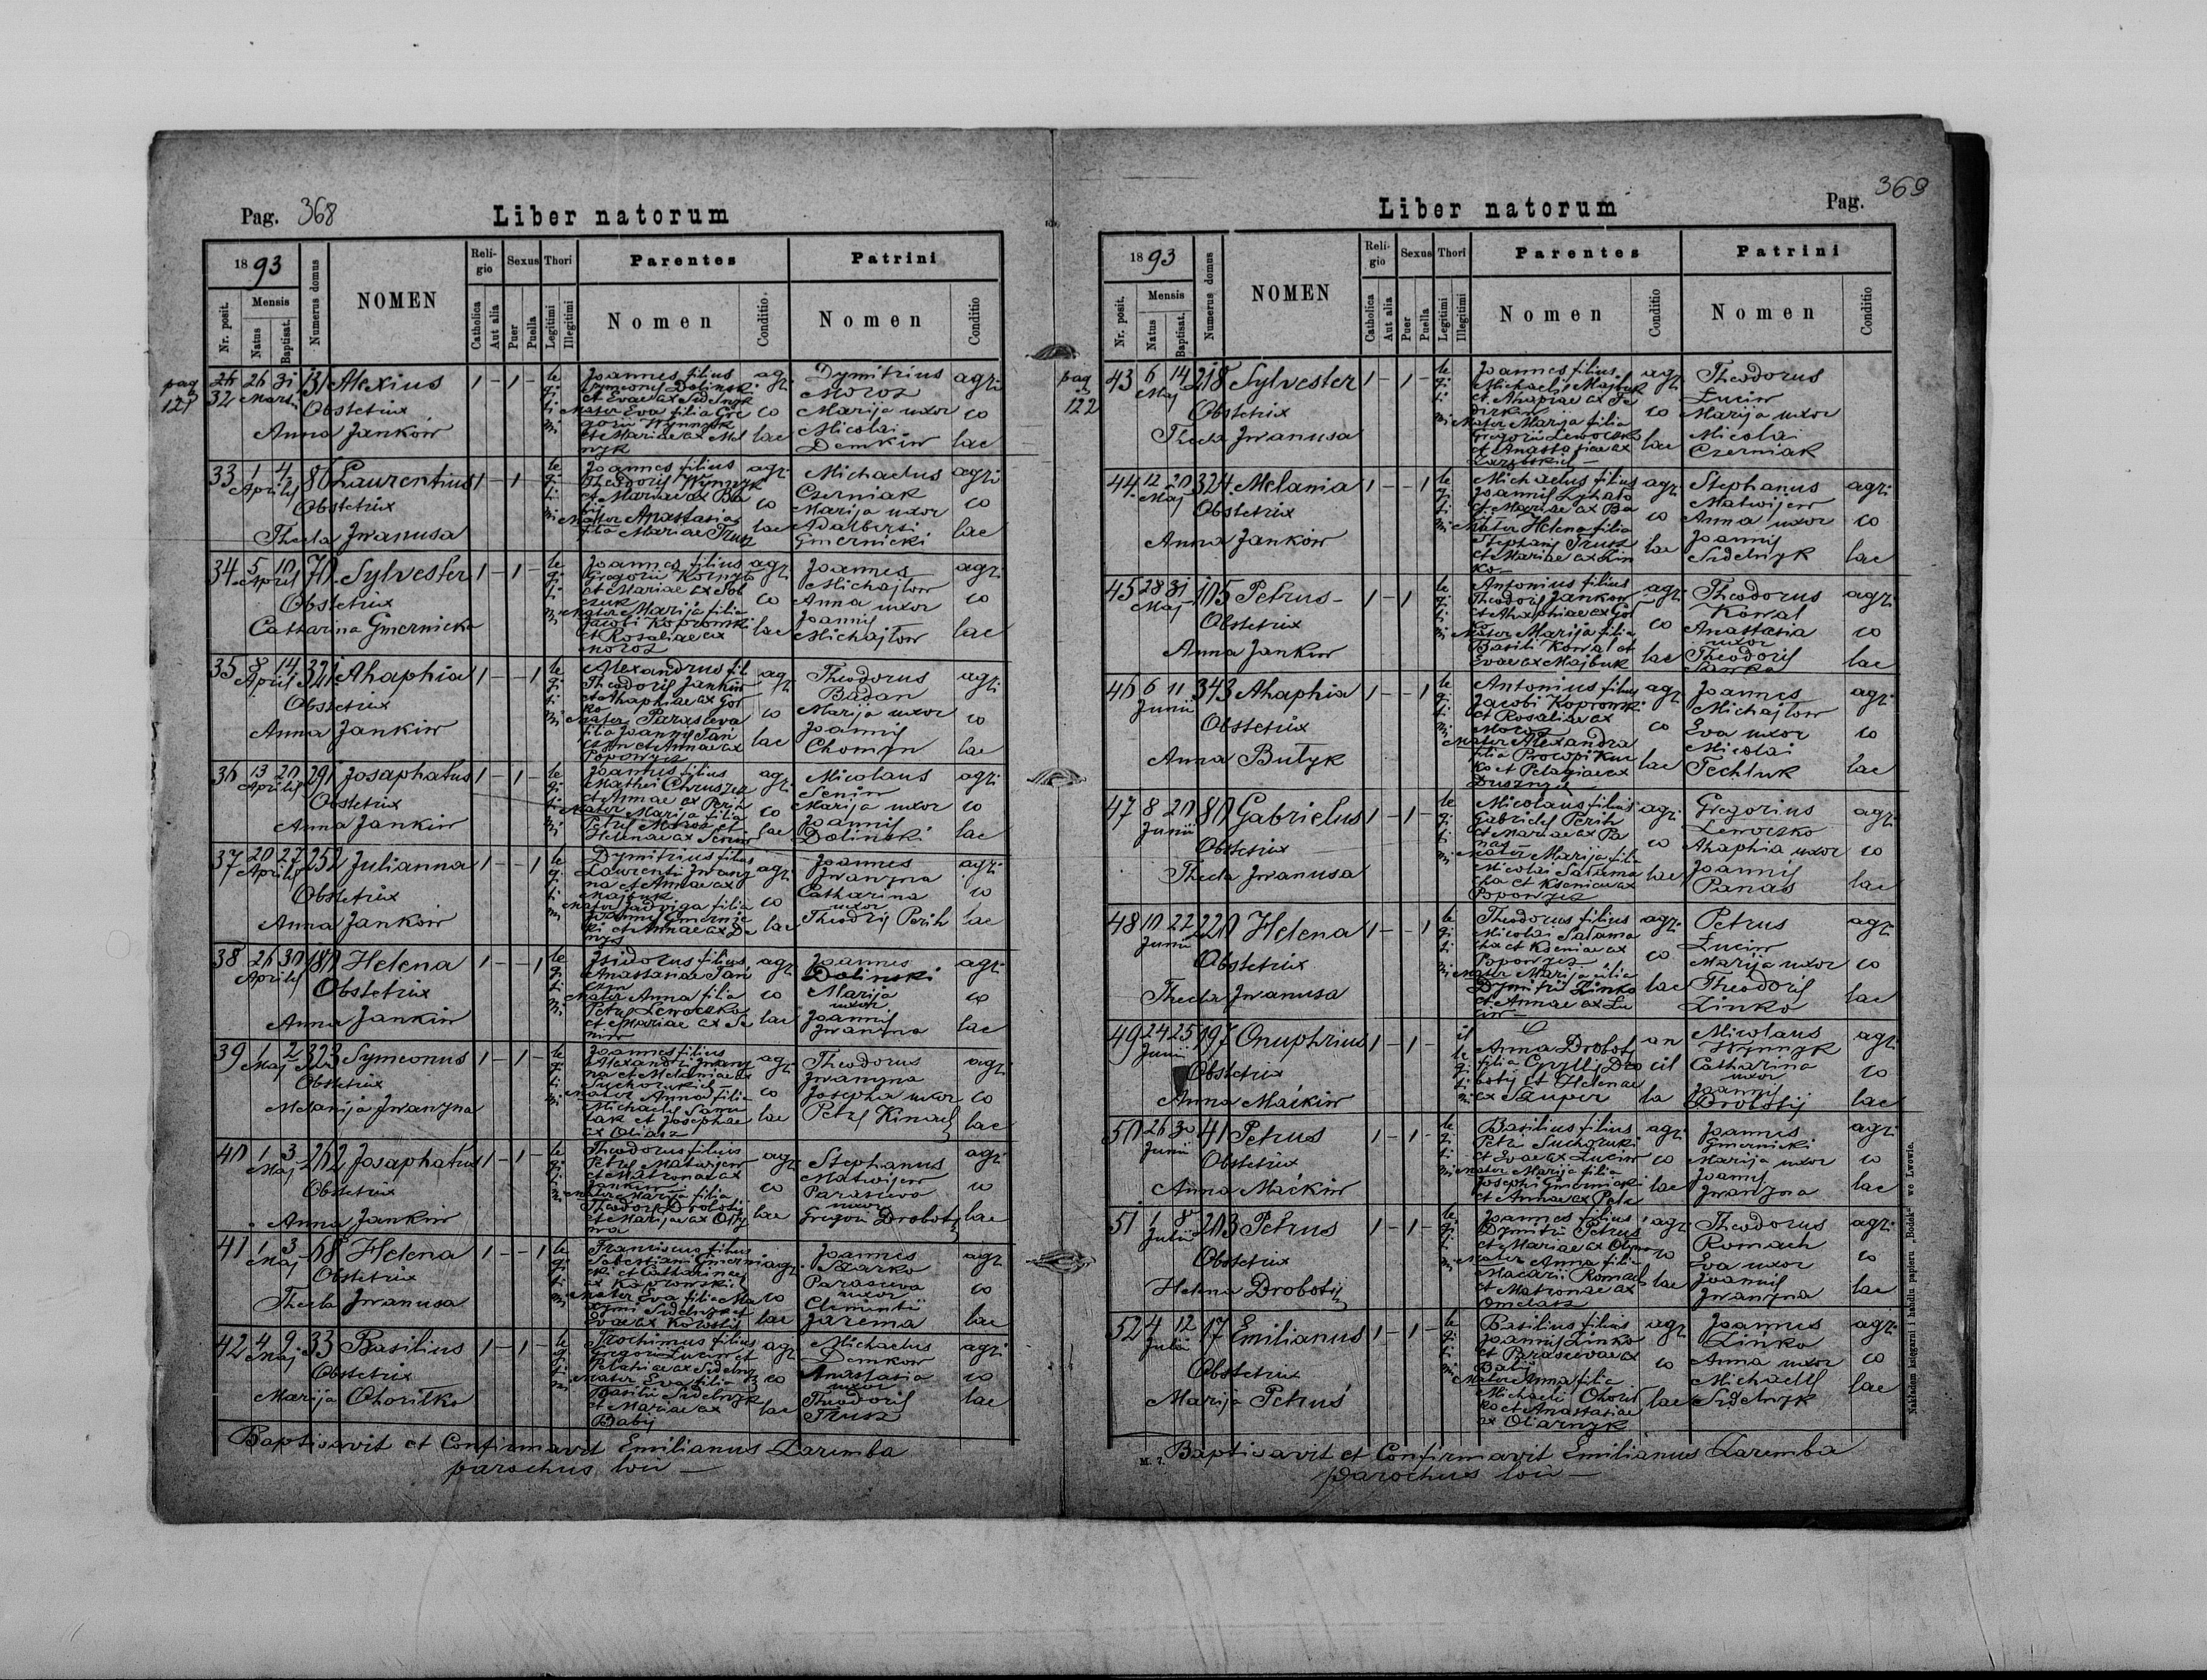 Pag. 368
Liber natorum
1893
Nr. posit.
Mensis
Natus
Baptisat.
Numerus domus
NOMEN
Religio
Catholica
Aut alia
Sexus
Puer
Puella
Thori
Legitimi
Illegitimi
Parentes
Nomen
Conditio.
Patrini
Nomen
Conditio
pag
121
32 26 31 131 Alexius 1 - 1 -
Marti
Obstetrix
Anna Jankow
legitimi
Joannes filius
Symeonis Dolinski
et Evae ex Sidelnyk
Mater Eva filia Gre
gorii Wynnyk
et Mariae ex Mel
nyk
agricolae
Dymitrius
Moroz
Marija uxor
Nicolai
Demkiw
agricolae
33 1 4 86 Laurentius 1 - 1
Aprilis
Obstetrix
Thecla Jwanusa
legitimi
Joannes filius
Theodoris Wynnyk
et Mariae ex Ba
Mater Anastasia
filia Mariae Trusz
agricolae
Michaelus
Czerniak
Marija uxor
Adalberti
Gmernicki
agricolae
34 5 10 70 Sylvester 1 - 1 -
April
Obstetrix
Catharina Gmernicka
legitimi
Joannes filius
Gregorii
et Mariae ex Sob
czuk
Mater Marija filia
Jacobi Koprowski
et Rosaliae ex
Moroz
agricolae
Joannes
Michajlow
Anna uxor
Joannis
Michajlow
agricolae
35 8 14 321 Ahaphia 1 - - 1
April
Obstetrix
Anna Jankiw
legitimi
Alexandrus fil
Theodoris Jankiw
et Ahaphiae ex Gor
ko
Mater Parasceva
filia Joannis Tan
czyn et Annae ex
Popowycz
agricolae
Theodorus
Badan
Marija uxor
Joannis
Chomyn
agricolae
36 13 20 291 Josaphatus 1 - 1 -
Aprilis
Obstetrix
Anna Jankiw
legitimi
Joannes filius
Mathei Chruszcz
et Annae ex Perih
Mater Marija filia
Petri Moroz et
Helenae ex Seniw
agricolae
Nicolaus
Seniw
Marija uxor
Joannis
Dolinski
agricolae
37 20 27 252 Julianna 1 - - 1
Aprilis
Obstetrix
Anna Jankow
legitimi
Dymitrius filius
Laurenti Jwany
na et Annae ex
Majbuk
Mater Jadwiga filia
Joannis Gmernic
ki et Annae ex De
nys
agricolae
Joannes
Jwanyna
Catharina
uxor
Theodoris Perih
agricolae
38 26 30 180 Helena 1 - - 1
Aprilis
Obstetrix
Anna Jankiw
legitimi
Isidorus filius
Anastasiae Tan
czyn
Mater Anna filia
Petri Lewoczko
et Mariae ex Se
niw
agricolae
Joannes
Dolinski
Marija
uxor
Joannis
Jwanyna
agricolae
39 1 2 323 Symeonus 1 - 1 -
Maj
Obstetrix
Melanija Jwanyna
legitimi
Joannes filius
Alexandri Jwany
na et Melaniae ex
Suchorukich
Mater Anna filia
Michaelis
et Josephae
ex Oliasz
agricolae
Theodorus
Jwanyna
Josepha uxor
Petri Kinach
agricolae
40 1 3 262 Josaphatus 1 - 1 -
Maj
Obstetrix
Anna Jankiw
legitimi
Theodorus filius
Petri Matwijew
et Matronae ex
Jankiw
Mater Marija filia
Theodoris Drobotij
et Marijae ex
agricolae
Stephanus
Matwijew
Parasceva
uxor
Gregori Drobotij
agricolae
41 1 3 68 Helena 1 - - 1
Maj
Obstetrix
Thecla Jwanusa
legitimi
Franciscus filius
Sebestiani Gmerni
cki et Catharinae
ex Koprowskich
Mater Eva filia Ma
ximi Sidelnyk et
Evae ex
agricolae
Joannes
Szarko
Parasceva
uxor
Clementii
Jarema
agricolae
42 4 9 33 Basilius 1 - 1 -
Maj
Obstetrix
Marija Ohorilko
legitimi
Trochimus filius
Gregorii Luciw et
Pelahiae ex Sidelnyk
Mater Eva filia
Basilii Sidelnyk
et Mariae ex
Babij
agricolae
Michaelus
Demkow
Anastasia
uxor
Theodoris
Trusz
agricolae
Baptisavit et Confirmavit Emilianus Zaremba
parochus loci —
Pag. 369
Liber natorum
1893
Nr. posit.
Mensis
Natus
Baptisat.
Numerus domus
NOMEN
Religio
Catholica
Aut alia
Sexus
Puer
Puella
Thori
Legitimi
Illegitimi
Parentes
Nomen
Conditio
Patrini
Nomen
Conditio
pag
122
43 6 14 218 Sylvester 1 - 1 -
Maj
Obstetrix
Thecla Jwanusa
legitimi
Joannes filius
Michaelis Majbuk
et Ahapiae ex Fe
dirkiw
Mater Marija filia
Gregorii Lewoczko
et Anastasiae ex
Zarybskich
agricolae
Theodorus
Luciw
Marija uxor
Nicolai
Czerniak
44 12 20 324 Melania 1 - - 1
Maj
Obstetrix
Anna Jankow
legitimi
Michaelus filius
Joannis
et Mariae ex Ba
Mater Helena filia
Stephani Trusz
et Mariae ex Zin
ko
agricolae
Stephanus
Matwijew
Anna uxor
Joannis
Sidelnyk
agricolae
45 28 31 105 Petrus 1 - 1
Maj
Obstetrix
Anna Jankiw
legitimi
Antonius filius
Theodoris Jankow
et Ahaphiae ex Gor
ko
Mater Marija filia
Basili Kowal et
Evae ex Majbuk
agricolae
Theodorus
Kowal
Anastasia
uxor
Theodoris
agricolae
46 6 11 343 Ahaphia 1 - - 1
Junii
Obstetrix
Anna Butyk
legitimi
Antonius filius
Jacobi Koprowski
et Rosaliae ex
Moroz
Mater Alexandra
filia Procopi Kuc
ko et Pelagiae ex
agricolae
Joannes
Michajlow
Eva uxor
Nicolai
Techluk
agricolae
47 8 20 80 Gabrielus 1 - 1 -
Junii
Obstetrix
Thecla Jwanusa
legitimi
Nicolaus filius
Gabrielis Perih
et Mariae ex Pa
nas
Mater Marija filia
Nicolai Salama
cha et Kseniae ex
Popowycz
agricolae
Gregorius
Lewoczko
Ahaphia uxor
Joannis
Panas
agricolae
48 10 22 220 Helena 1 - - 1
Junii
Obstetrix
Thecla Jwanusa
legitimi
Theodorus filius
Nicolai Salama
cha et Kseniae ex
Popowycz
Mater Marija filia
Dymitrii Zinko
et Annae ex Lu
ciw
agricolae
Petrus
Luciw
Marija uxor
Theodoris
Zinko
agricolae
49 24 25 197 Onuphrius 1 - 1 -
Junii
Obstetrix
Anna Maikiw
illegitimi
Anna Drobotij
filia Cyrylli Dro
botij et Helenae
ex Szuper
ancilla
Nicolaus
Wynnyk
Catharina
uxor
Joannis
Drobotij
agricolae
50 26 30 41 Petrus 1 - 1 -
Junii
Obstetrix
Anna Maćkiw
legitimi
Basilius filius
Petri Suchoruki
et Evae ex Luciw
Mater Marija filia
Josephi Gmernicki
et Annae ex
agricolae
Joannes
Gmernicki
Marija uxor
Joannis
Jwanyna
agricolae
51 1 8 203 Petrus 1 - 1 -
Julii
Obstetrix
Helena Drobotij
legitimi
Joannes filius
Dymitrii Petrus
et Mariae ex
Mater Anna filia
Macarii Romach
et Matronae ex
Omelasz
agricolae
Theodorus
Romach
Eva uxor
Joannis
Jwanyna
agricolae
52 4 12 17 Emilianus 1 - 1 -
Julii
Obstetrix
Marija Petrus
legitimi
Basilius filius
Joannis Zinko
et Parascevae ex
Babij
Mater Anna filia
Michaeli Ohoril
ko et Anastasiae
ex Oliarnyk
agricolae
Joannes
Zinko
Anna uxor
Michaelis
Sidelnyk
agricolae
M. 7. Baptisavit et Confirmavit Emilianus Zaremba
parochus loci —
Nakładem księgarni i handlu papieru „Bodek“ we Lwowie.